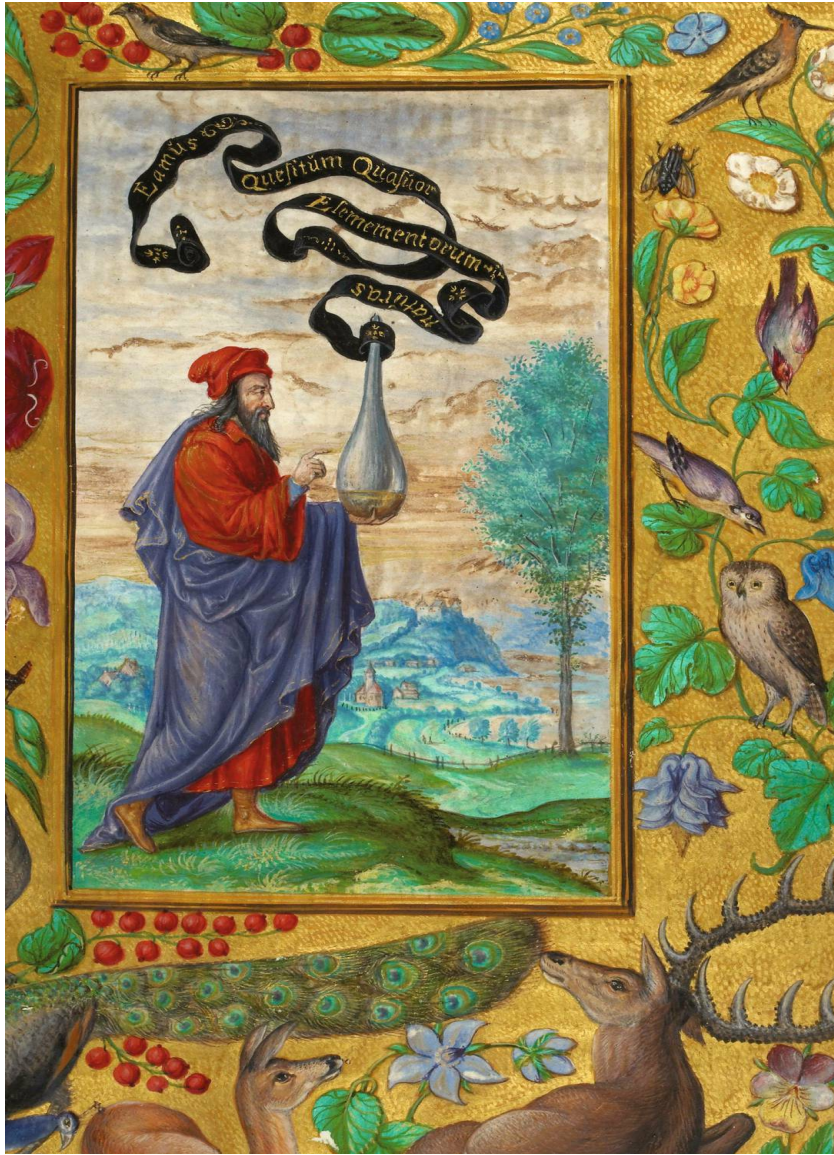 Eamŭs
Queſitŭm Quatŭor
Elemementorum
natŭras